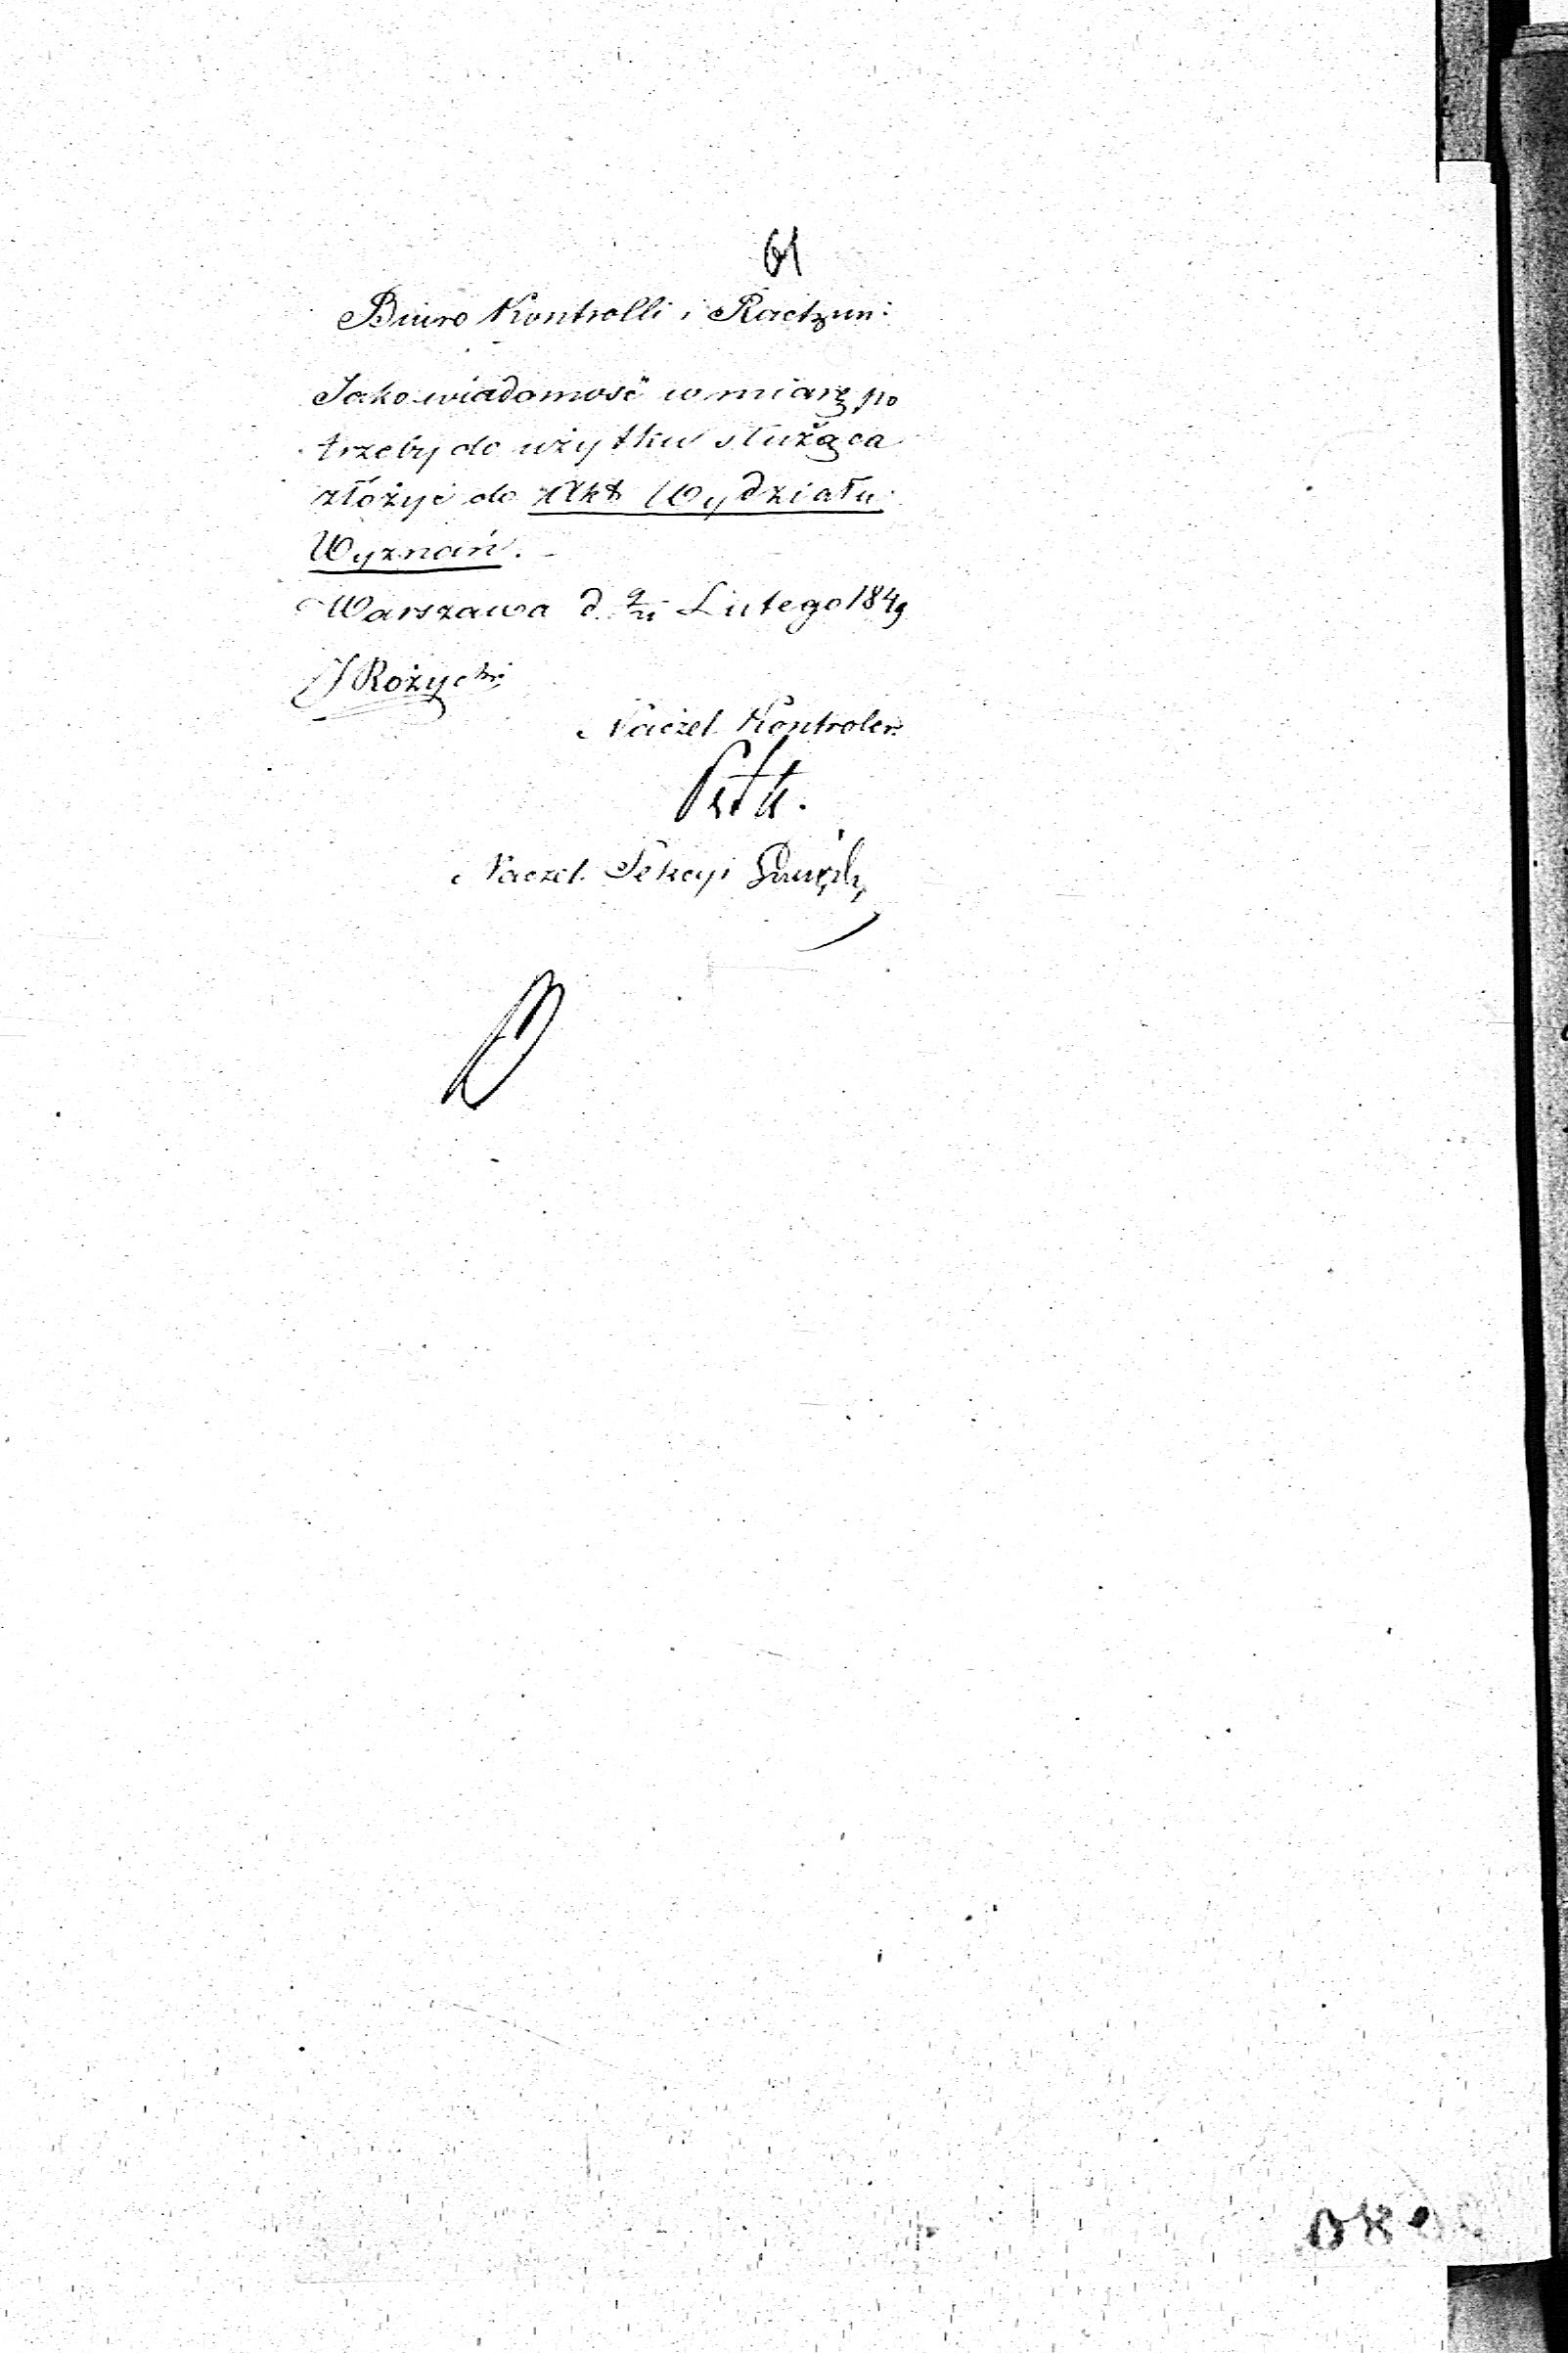 61
Biuro Kontrolli i Rachun:
Jako wiadomość w miarę po
trzeby do użytku służąca
złożyć do Akt Wydziału
Wyznań. -
Warszawa d. 9/21 Lutego 1849
J Rożycki
Naczel. Kontroler:
Naczel. Sekcyi